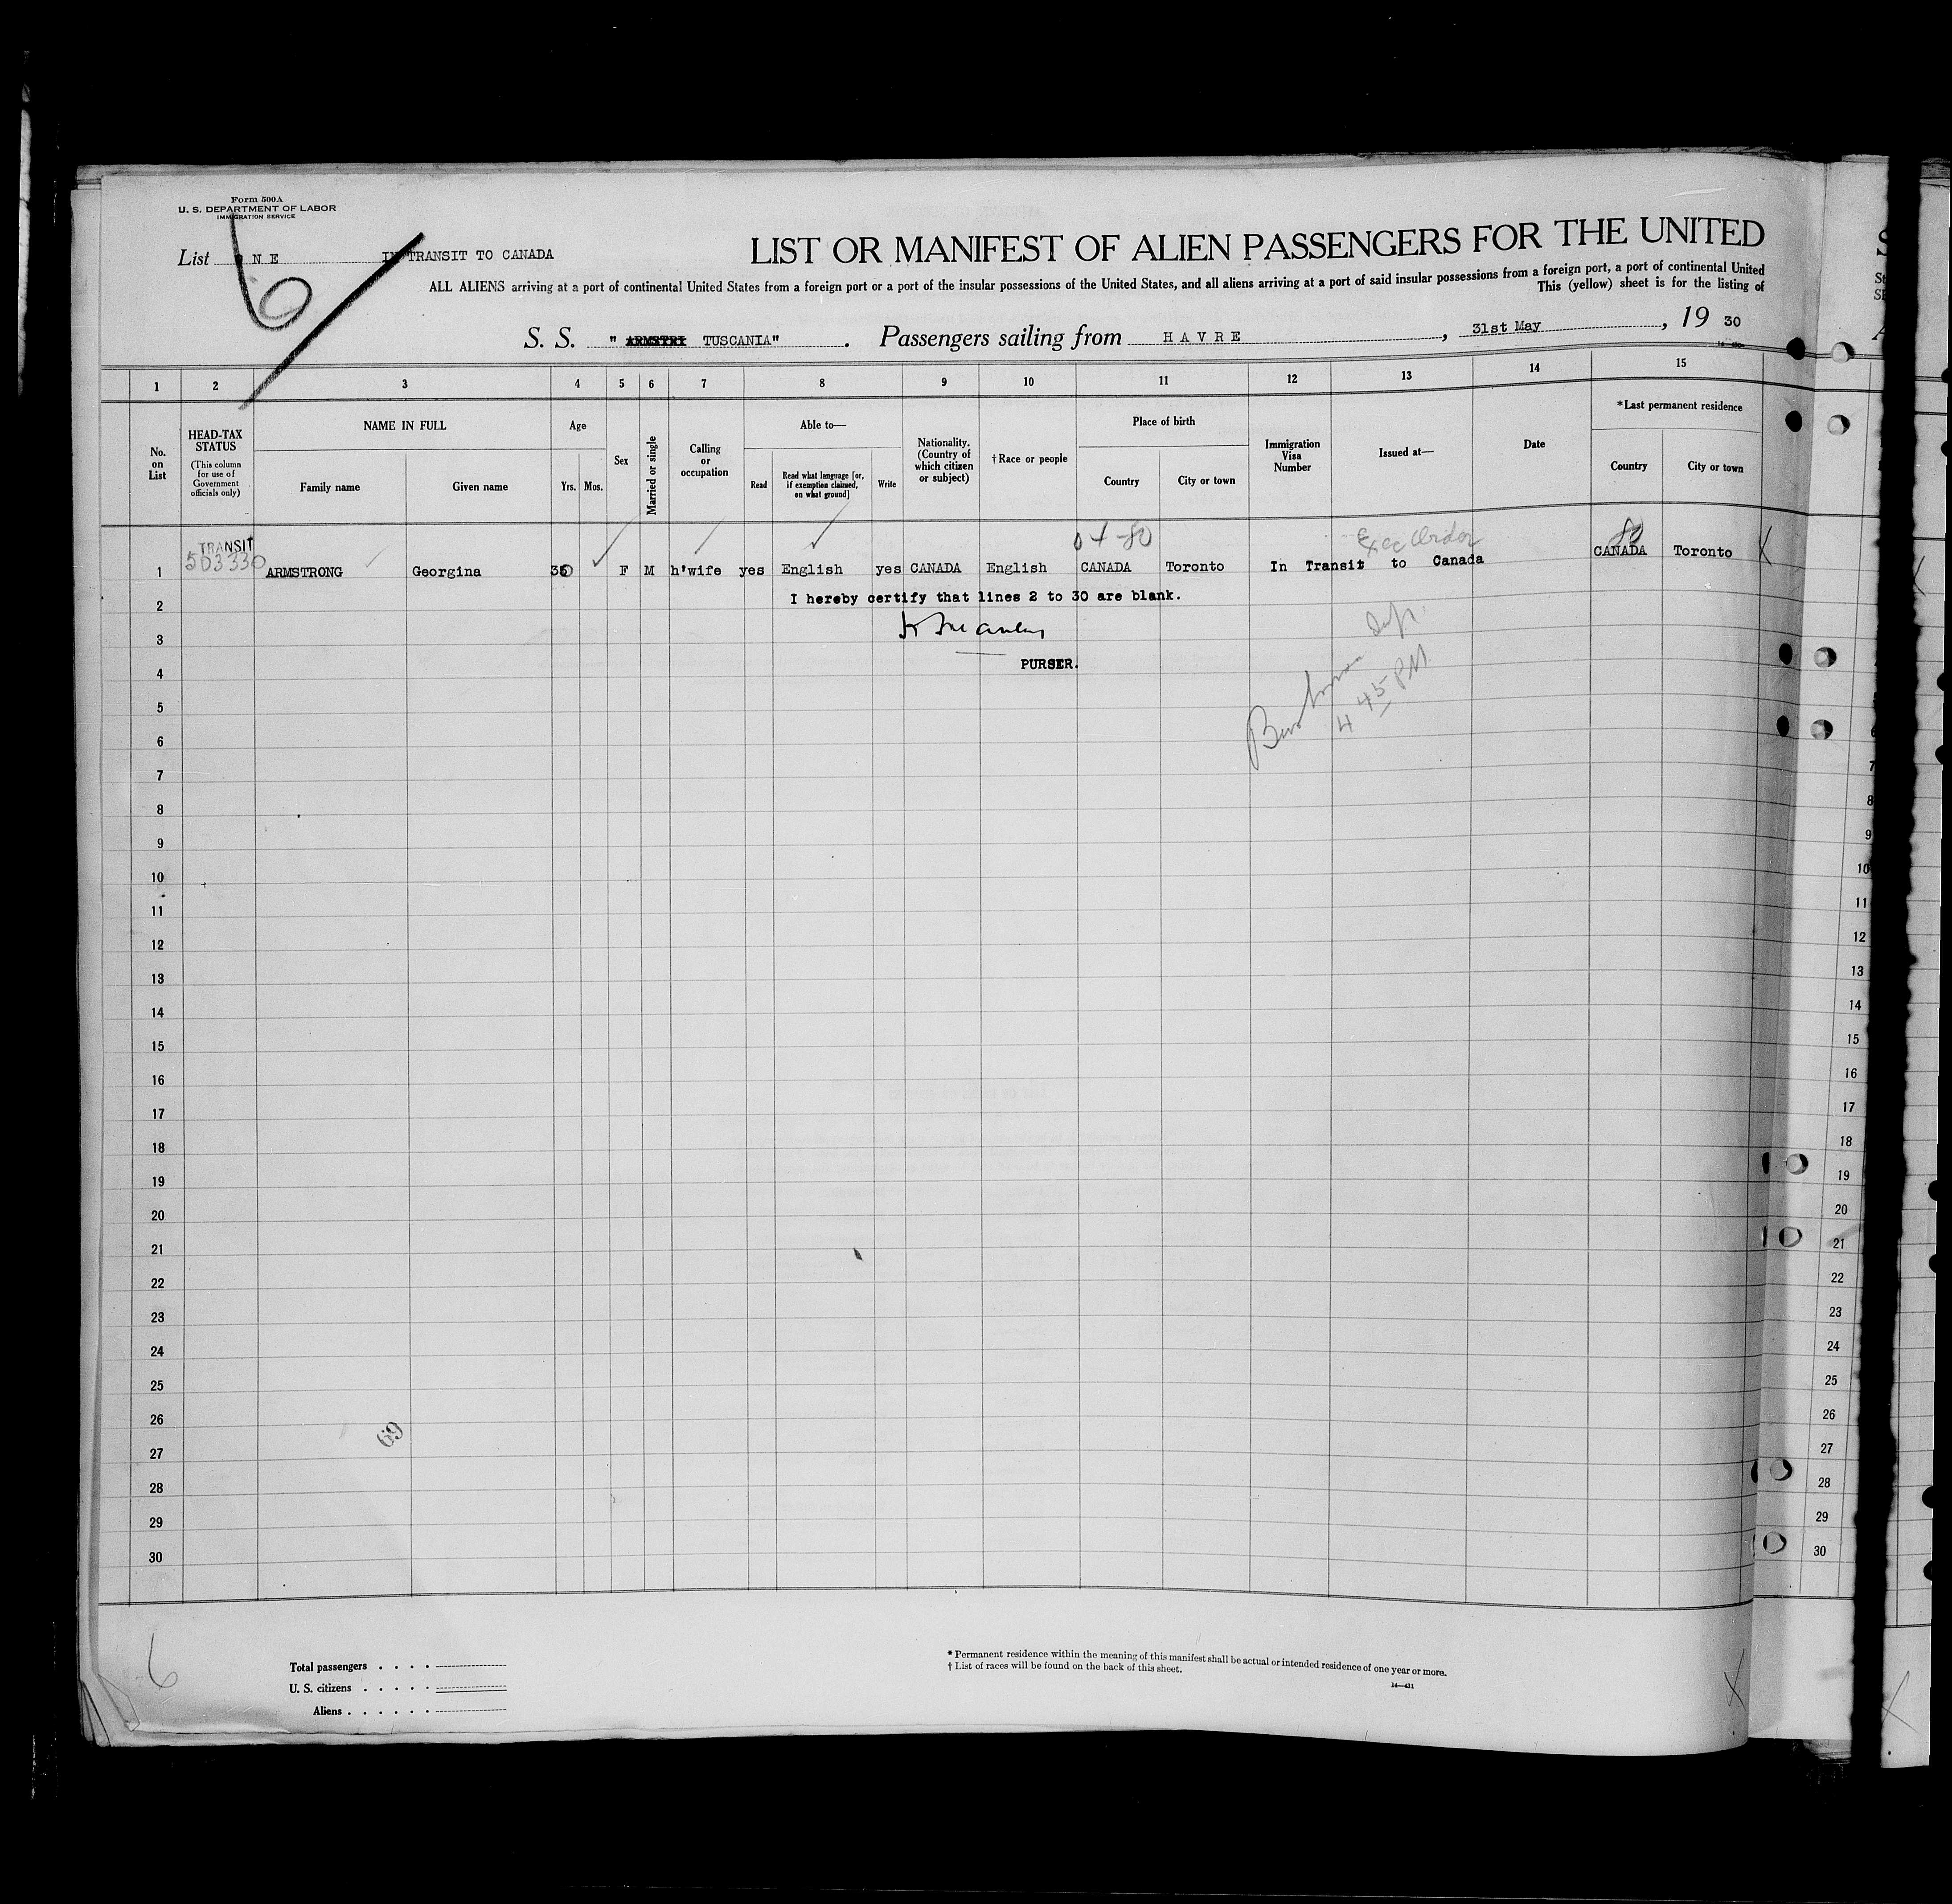 Form 500A
U. S. DEPARTMENT OF LABOR
IMMIGRATION SERVICE
List ONE IN TRANSIT TO CANADA
6
LIST OR MANIFEST OF ALIEN PASSENGERS FOR THE UNITED
ALL ALIENS arriving at a port of continental United States from a foreign port or a port of the insular possessions of the United States, and all aliens arriving at a port of said insular possessions from a foreign port, a port of continental United
This (yellow) sheet is for the listing of
S. S. " TUSCANIA" . Passengers sailing from HAVRE , 31st May , 19 30
1 2 3 4 5 6 7 8 9 10 11 12 13 14 15
No. on List
HEAD-TAX STATUS
(This column for use of Government officials only)
NAME IN FULL
Family name
Given name
Age
Yrs. Mos.
Sex
Married or single
Calling or occupation
Able to—
Read
Read what language [or, if exemption claimed, on what ground]
Write
Nationality. (Country of which citizen or subject)
†Race or people
Place of birth
Country
City or town
Immigration Visa Number
Issued at—
Date
*Last permanent residence
Country
City or town
TRANSIT
503330
Exec Order
80
1 ARMSTRONG Georgina F M h'wife yes English yes CANADA English CANADA Toronto In Transit to Canada CANADA Toronto
2 I hereby certify that lines 2 to 30 are blank.
3
4 PURSER.
4 45 PM
5
6
7
8
9
10
11
12
13
14
15
16
17
18
19
20
21
22
23
24
25
26
69
27
28
29
30
7
8
9
10
11
12
13
14
15
16
17
18
19
20
21
22
23
24
25
26
27
28
29
30
6
Total passengers . . . .
U. S. citizens . . . . .
Aliens . . . . . .
* Permanent residence within the meaning of this manifest shall be actual or intended residence of one year or more.
† List of races will be found on the back of this sheet.
14—431